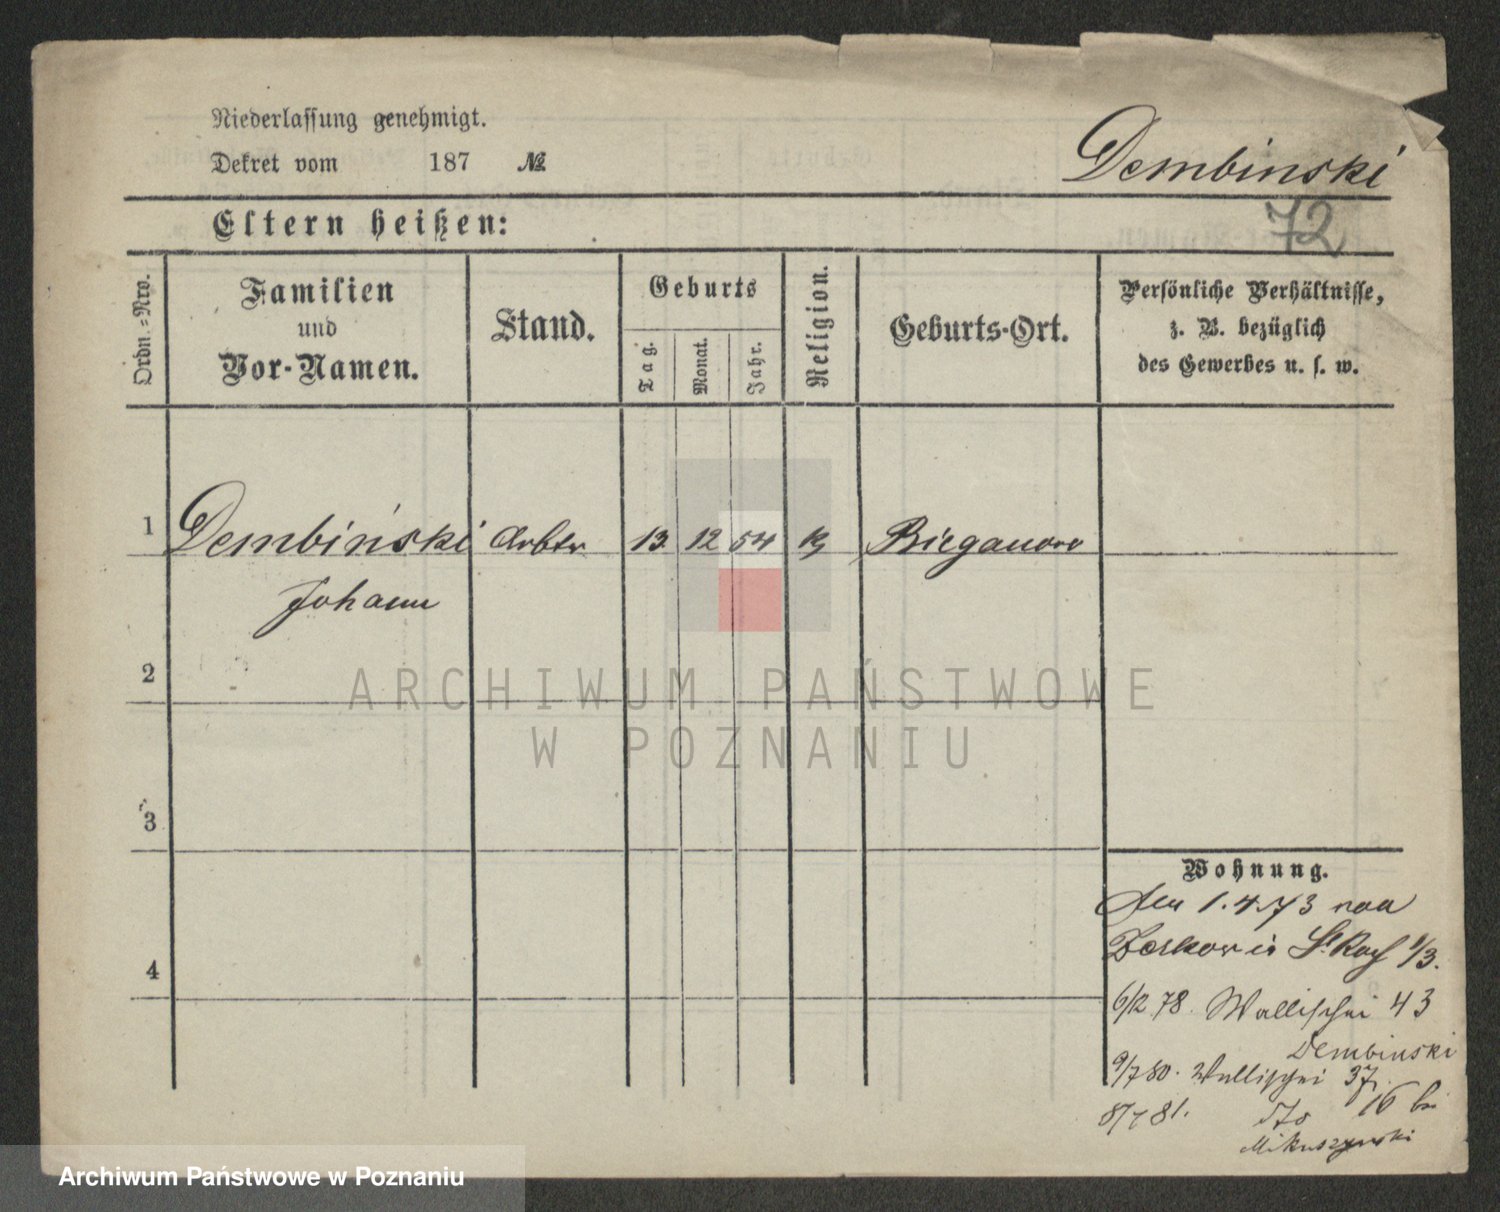 Niederlassung genehmigt.
Dekret vom 187 №
Dembinski
72
Eltern heißen:
Ordn.=Nro.
Familien
und
Vor-Namen.
Stand.
Geburts
Tag.
Monat.
Jahr.
Religion.
Geburts-Ort.
Persönliche Verhältnisse,
z. B. bezüglich
des Gewerbes u. s. w.
1 Dembiński Arbtr 13 12 54 k Bieganowo
Johann
2
3
4
Wohnung.
1.4.73
St. Roch 1/3.
6/2 78. Wallischei 43
Dembinski
9/7 80. Wallischei 37
8/7 81. dto 16 bei
Mikuszynski
ARCHIWUM PAŃSTWOWE
W POZNANIU
Archiwum Państwowe w Poznaniu